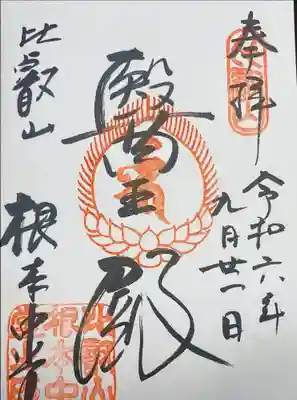 奉拝
令和六年
九月廿一日
醫王殿
比叡山
根本中堂
比叡山
根本中